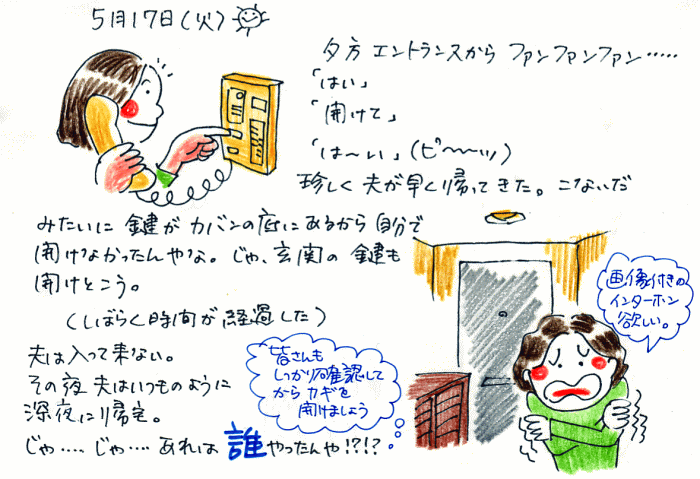 5月17日(火)
夕方 エントランスから ファンファンファン……
「はい」
「開けて」
「は〜い」(ピ〜〜ッ)
珍しく 夫が早く帰ってきた。こないだ
みたいに 鍵が カバンの底にあるから 自分で
開けなかったんやな。じゃ、玄関の 鍵も
開けとこう。
(しばらく時間が経過した)
夫は入って来ない。
その夜 夫はいつものように
深夜に帰宅。
じゃ…‥ じゃ…‥ あれは 誰やったんや!?!?
皆さんも
しっかり確認して
から カギを
開けましょう
画像付きの
インターホン
欲しい。